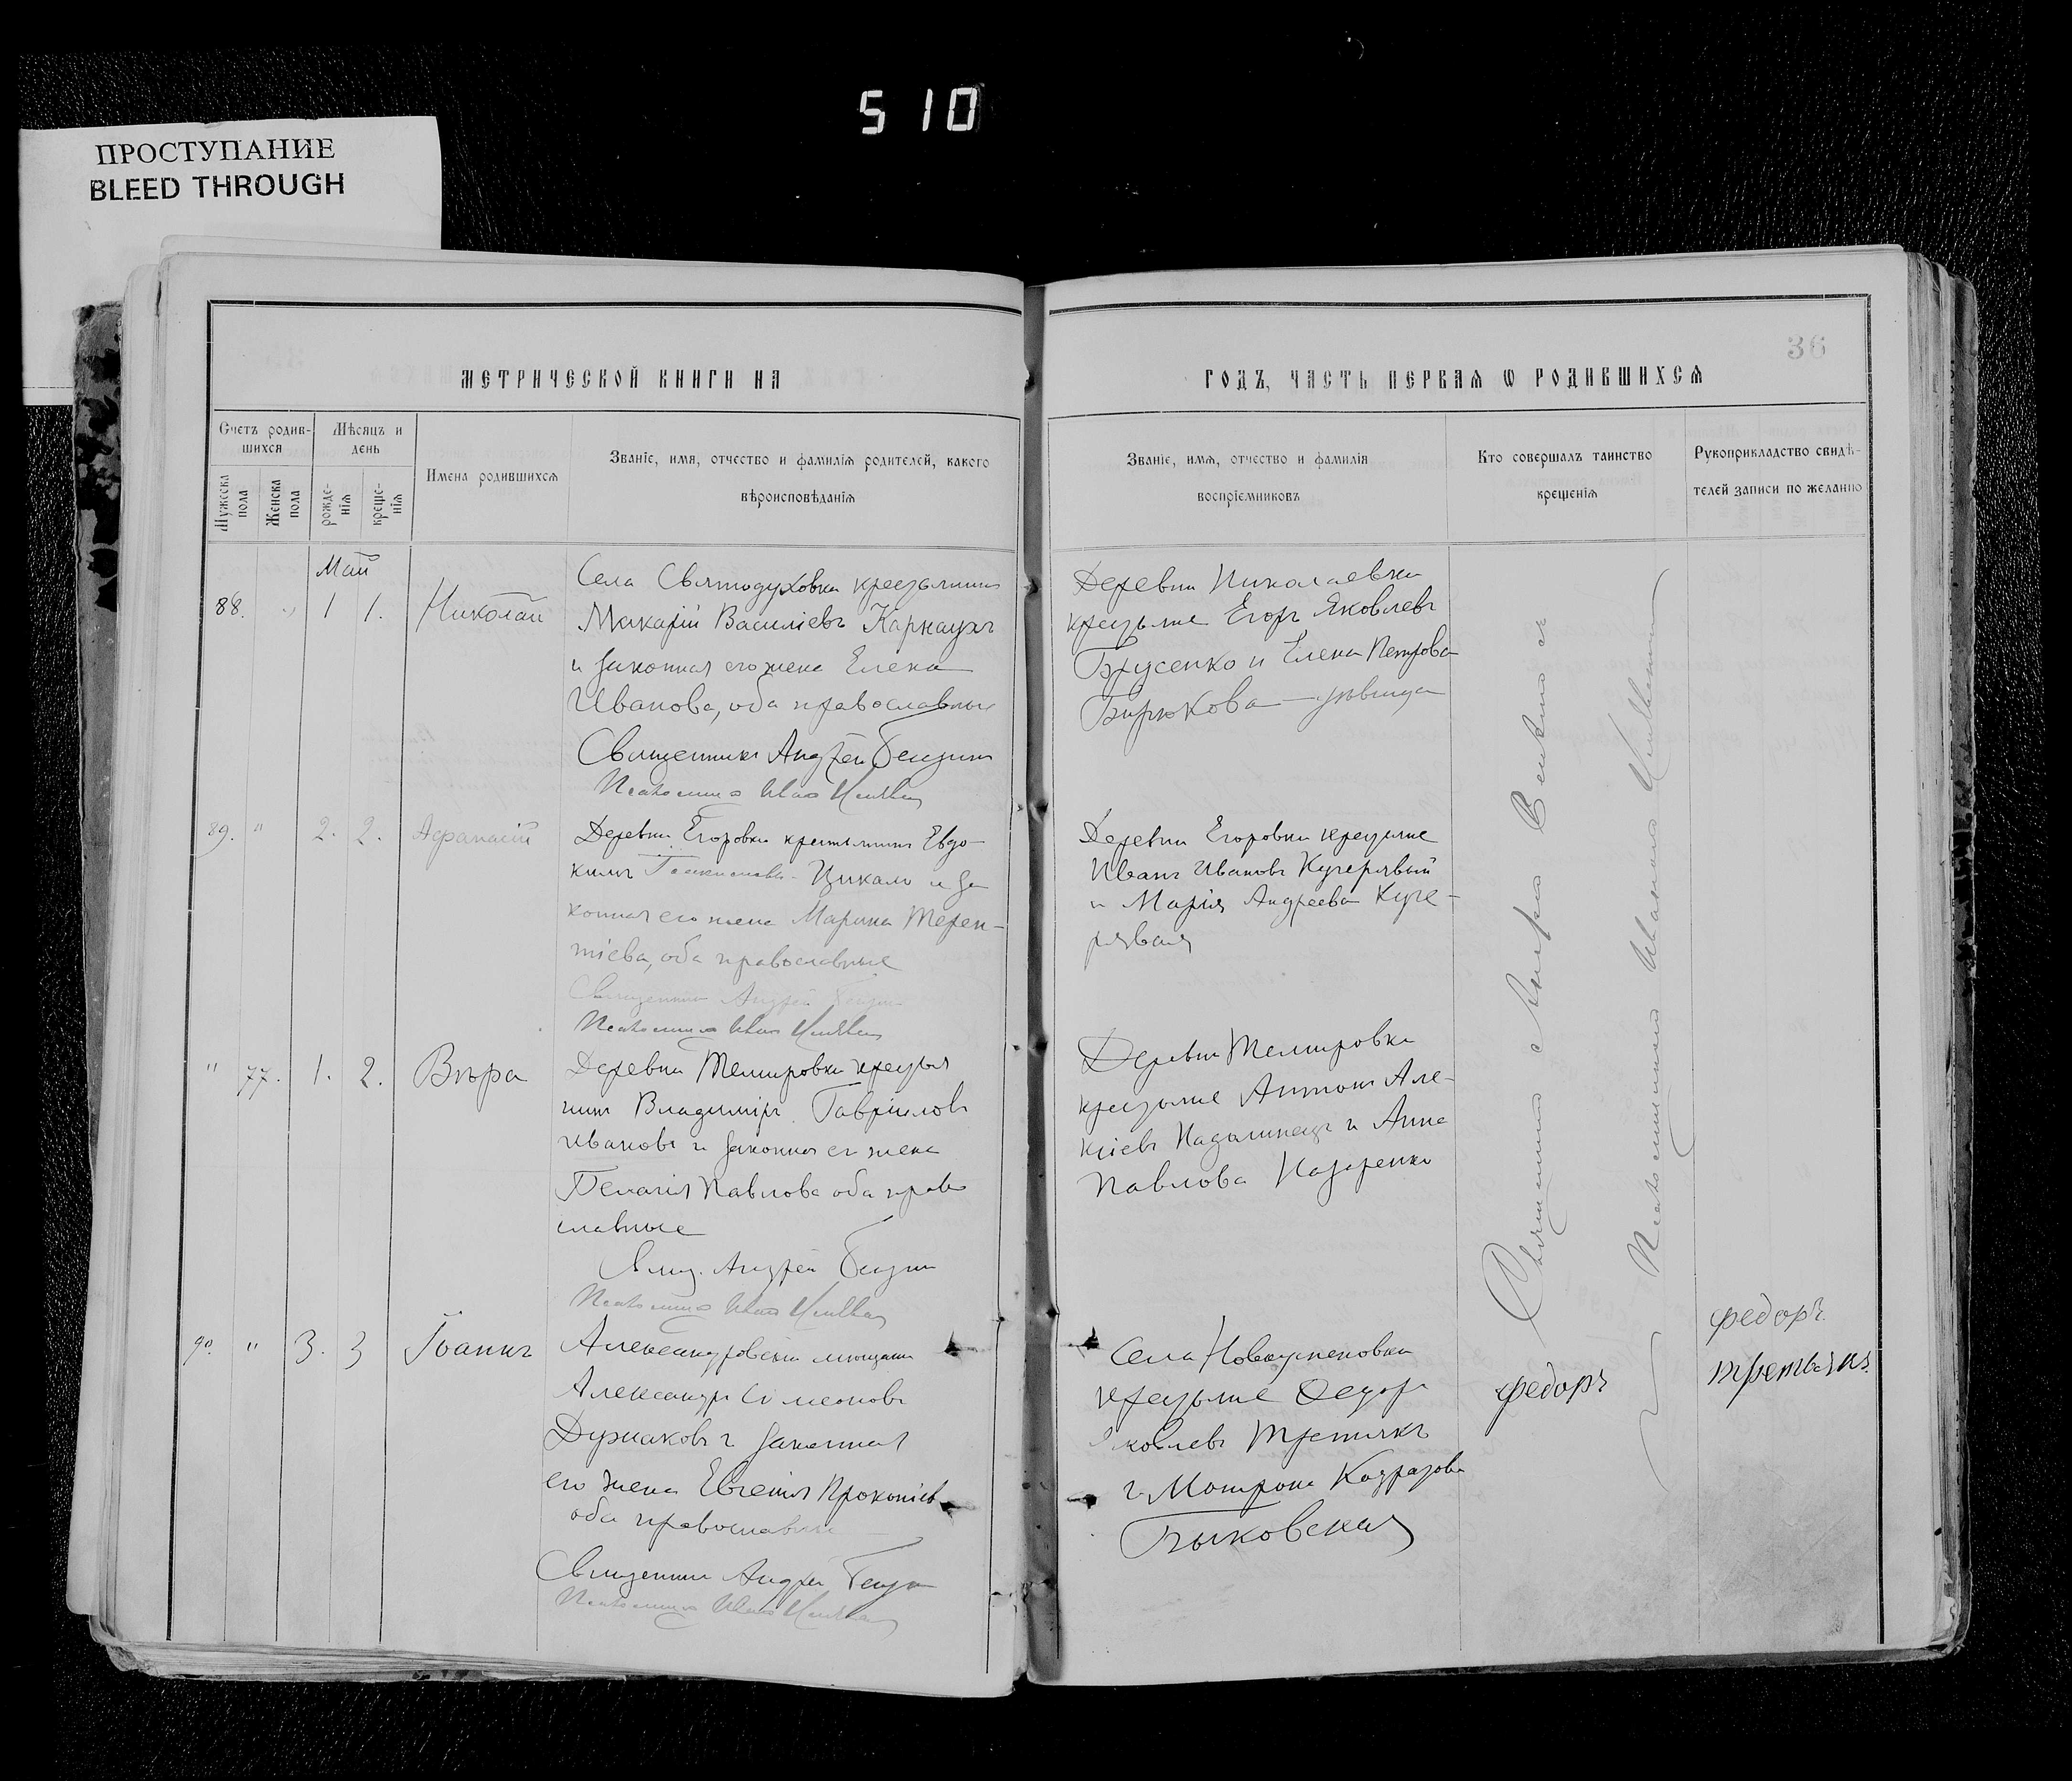 510
ПРОСТУПАНИЕ
BLEED THROUGH
36
МЕТРИЧЕСКОЙ КНИГИ НА
ГОДЪ, ЧАСТЬ ПЕРВАЯ Ѡ РОДИВШИХСЯ
Счетъ родив-
шихся
Мужеска
пола
Женска
пола
Мѣсяцъ и
день
рожде-
нія
креще-
нія
Имена родившихся
Званіе, имя, отчество и фамилія родителей, какого
вѣроисповѣданія
Званіе, имя, отчество и фамилія
воспріемниковъ
Кто совершалъ таинство
крещенія
Рукоприкладство свидѣ-
телей записи по желанію
Май
88. " 1 1. Николай
Села Святодуховки крестьянинъ
Макарій Василіевъ Карнаухъ
и законная его жена Елена
Иванова, оба православные
Священникъ Андрей
Псаломщикъ
Деревни Николаевки
крестьяне Егоръ Яковлевъ
Брусенко и Елена Петрова
Бирюкова — дѣвица
89. " 2. 2. Афанасій
Деревни Егоровки крестьянинъ Евдо-
кимъ Цикало и за
конная его жена Марина Терен-
тіева, оба православные
Священникъ Андрей
Псаломщикъ
Деревни Егоровки крестьяне
Иванъ Ивановъ Кучерявый
и Марія Андреева Куче-
рявая
" 77. 1. 2. Вѣра
Деревни Темировки крестья
нинъ Владиміръ Гавріиловъ
Ивановъ и законная ег жена
Пелагія Павлова оба право
славные
Свящ. Андрей
Псаломщикъ
Деревни Темировки
крестьяне Антонъ Але-
ксіевъ и Анна
Павлова Назаренко
90. " 3. 3 Іоаннъ
Александровскій мѣщанин
Александръ Симеоновъ
и законная
его жена Евгенія Прокопіев
оба православные
Священник Андрей
Псаломщикъ
Села
крестьяне Ѳедоръ
Яковлевъ Третьякъ
и Мотрона
Быковская
Священникъ Андрей
Псаломщикъ
федоръ
федоръ
третьякъ